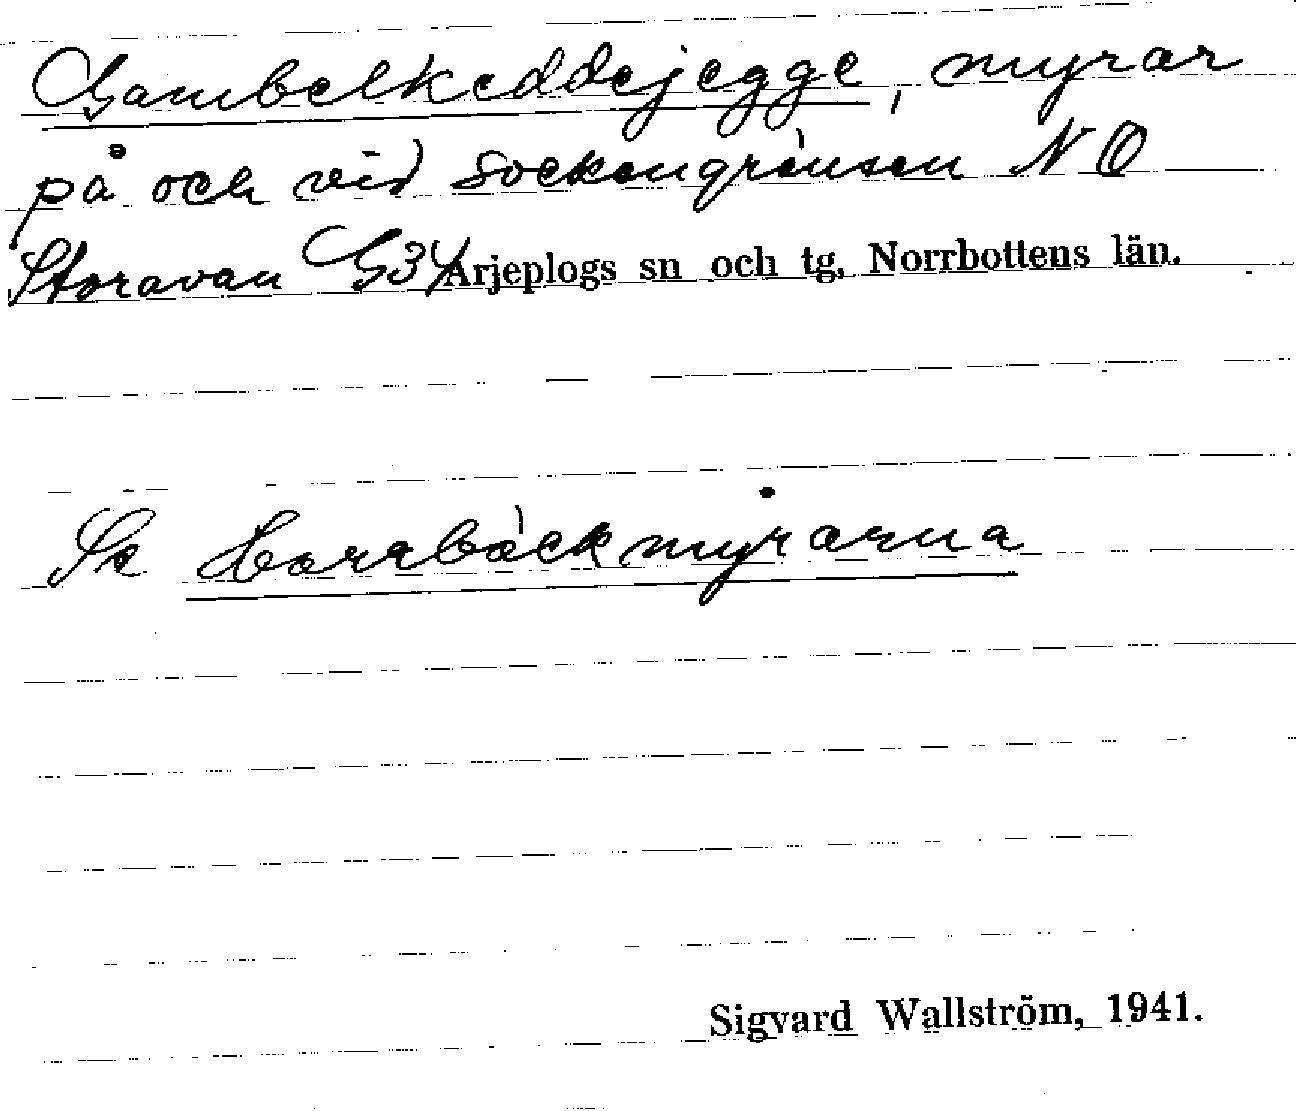 Gambelkeddejegge, myrar
på och vid sockengränsen NO
Storavan G34 Arjeplogs sn och tg, Norrbottens län.
Se Horrbäckmyrarna
Sigvard Wallström, 1941.